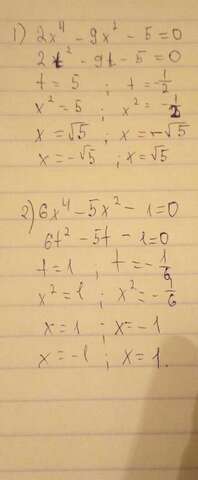 1) 2x⁴ - 9x² - 5 = 0
2t² - 9t - 5 = 0
t = 5 ; t = -1/2
x² = 5 ; x² = -1/2
x = √5 ; x = -√5
x = -√5 ; x = √5
2) 6x⁴ - 5x² - 1 = 0
6t² - 5t - 1 = 0
t = 1 ; t = -1/6
x² = 1 ; x² = -1/6
x = 1 ; x = -1
x = -1 ; x = 1.